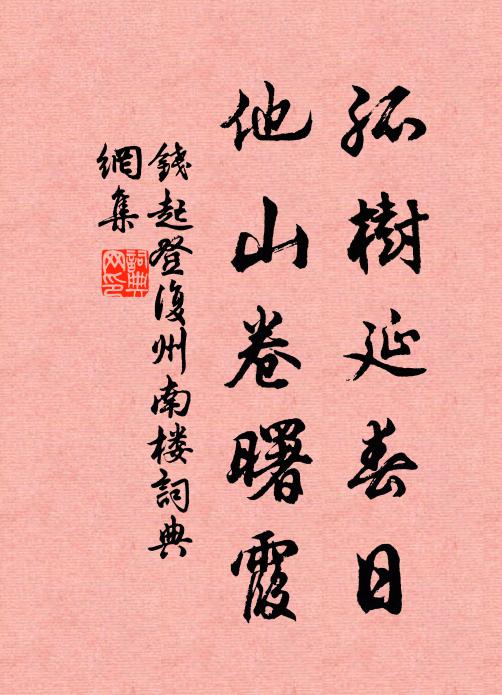 孤樹延春日
他山卷曙霞
錢起登復州南楼詞典
網集
詞典
网印